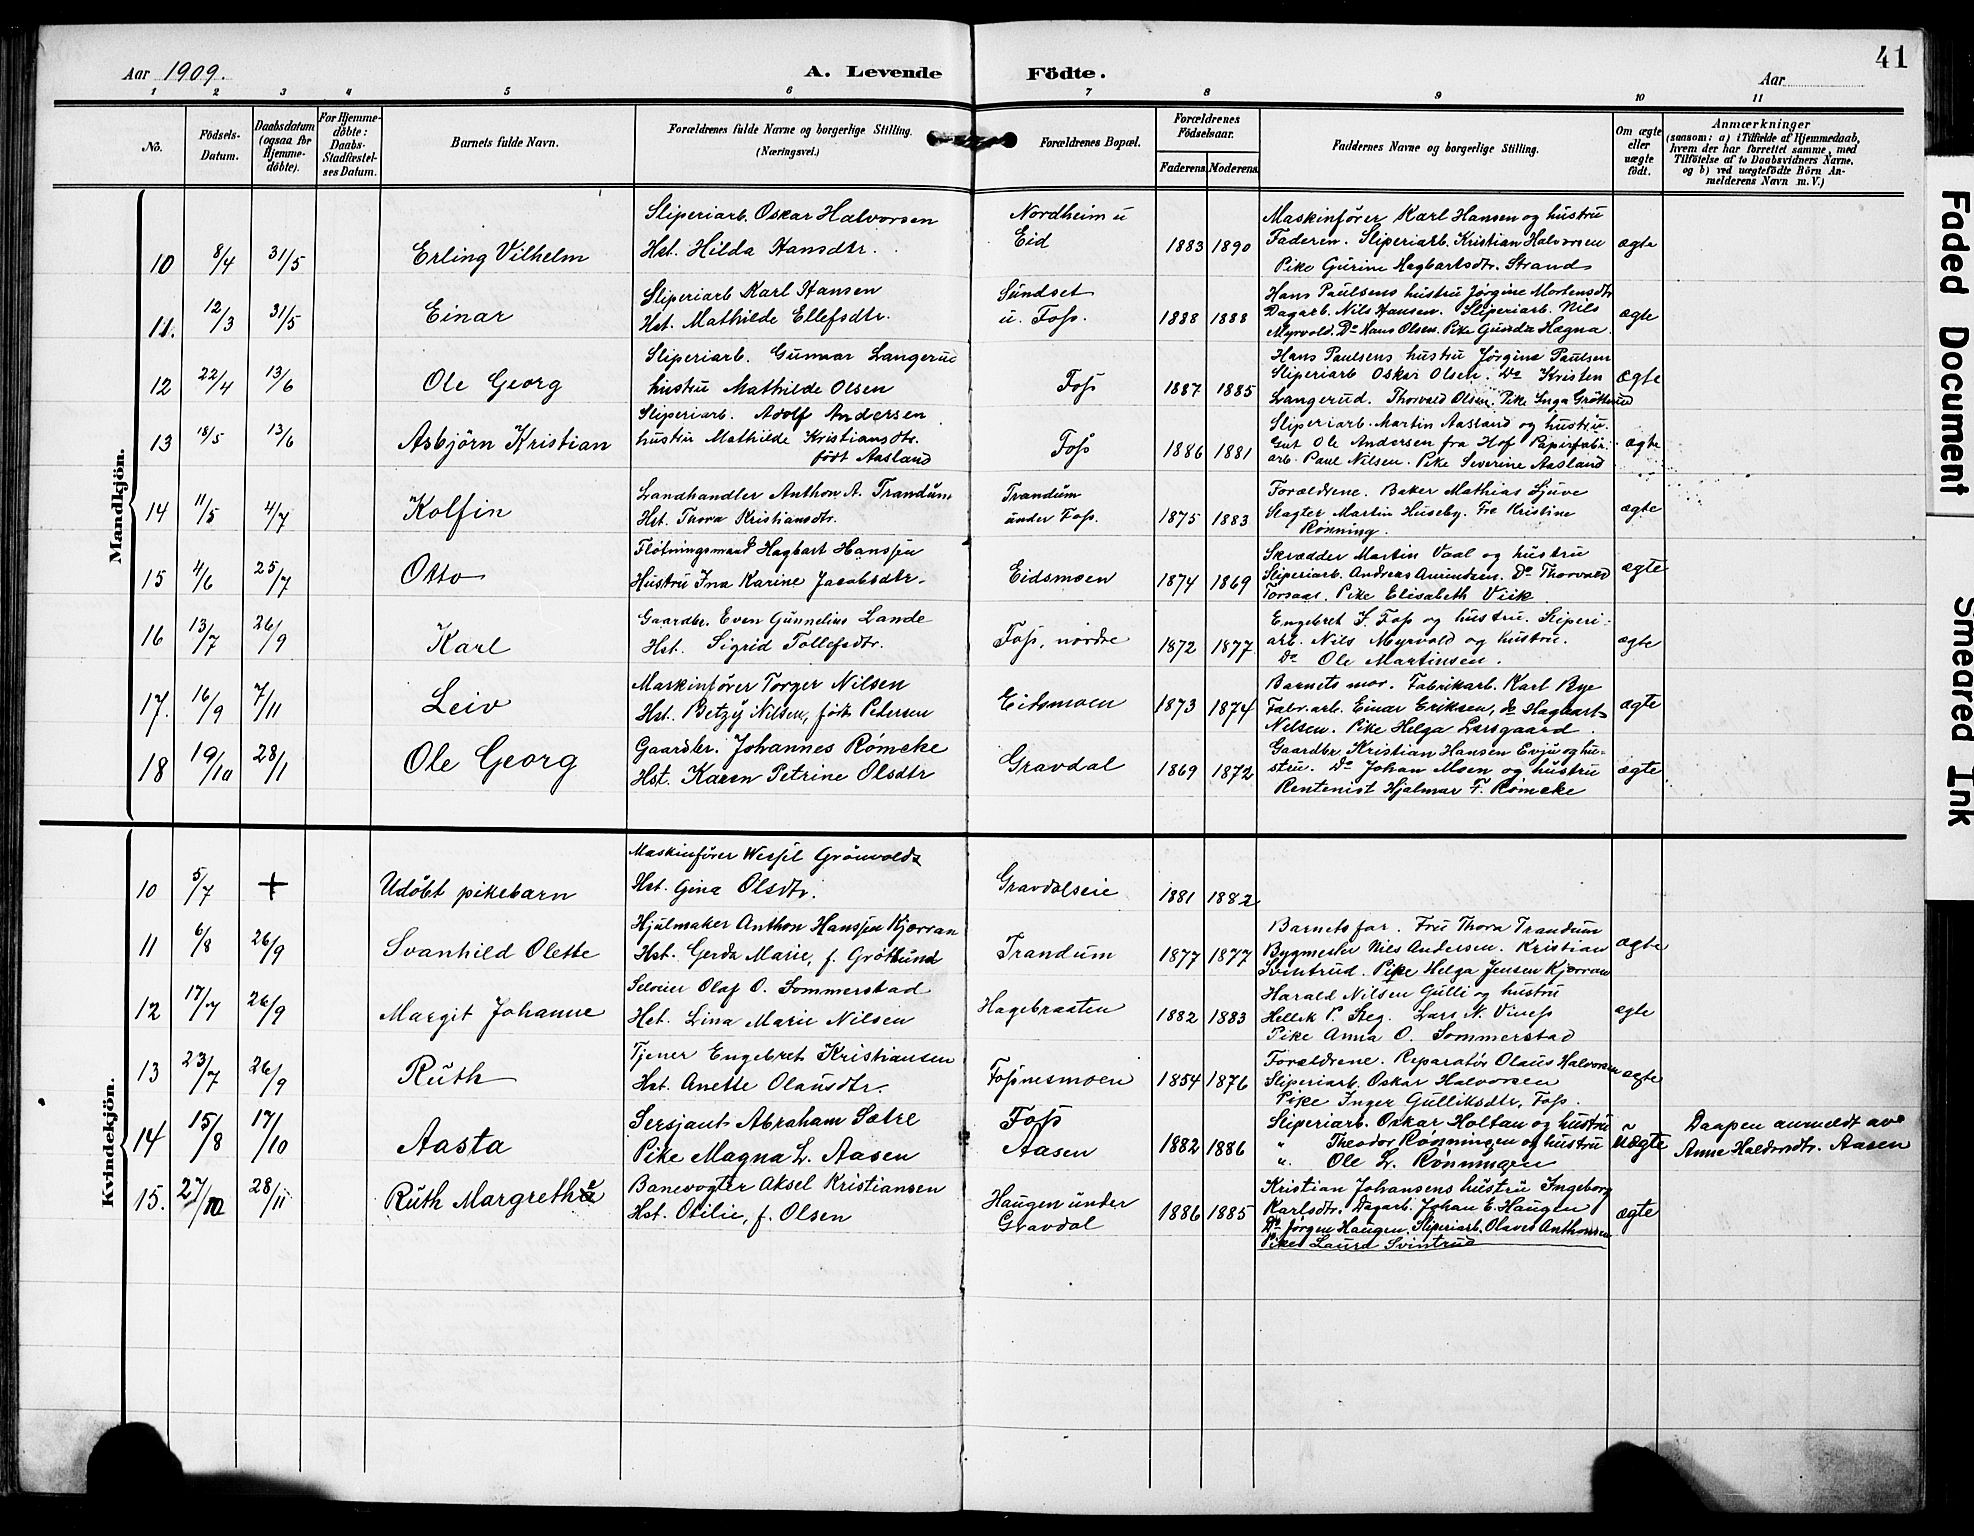 Aar 1909. A. Levende Födte. Aar 41
1 2 3 4 5 6 7 8 9 10 11
No. Födsels-Datum. Daabsdatum (ogsaa for Hjemmedöbte). For Hjemmedöbte: Daabs-Stadfæstelses Datum. Barnets fulde Navn. Forældrenes fulde Navne og borgerlige Stilling. (Næringsvei.) Forældrenes Bopæl. Forældrenes Födselsaar. Faderens. Moderens. Faddernes Navne og borgerlige Stilling. Om ægte eller uægte födt. Anmærkninger (saasom: a) i Tilfælde af Hjemmedaab, hvem der har forrettet samme, med Tilföielse af to Daabsvidners Navne, og b) ved uægtefödte Börn Anmelderens Navn m. V.)
Mandkjön.
Sliperiarb. Oskar Halvorsen Nordheim u Maskinfører Karl Hansen og hustru
10 8/4 31/5 Erling Vilhelm Hst. Hilda Hansdtr. Eid 1883 1890 Faderen. Sliperiarb. Kristian Halvorsen ægte
Pike Gurine Hagbartsdtr. Strand
Sliperiarb Karl Hansen Sundset Hans Paulsens hustru Jørgine Mortensdtr
11. 12/3 31/5 Einar Hst. Mathilde Ellefsdtr. u. Foss. 1888 1888 Dagarb. Nils Hansen. Sliperiarb. Nils ægte
Myrvold. Do Hans Olsen. Pike Gunda Hægna.
Sliperiarb. Gunnar Langerud Hans Paulsens hustru Jørgine Paulsen
12 22/4 13/6 Ole Georg hustru Mathilde Olsen Foss 1887 1885 Sliperiarb Oskar Olsen. Do Kristen ægte
Langerud. Thorvald Olsen. Pike Inga Grøtterud
Sliperiarb. Adolf Andersen Sliperiarb. Martin Aasland og hustru.
13 18/5 13/6 Asbjörn Kristian hustru Mathilde Kristiansdtr. Foss 1886 1881 Gut Ole Andersen fra Hof Papirfabr. ægte
født Aasland arb. Paul Nilsen. Pike Severine Aasland
Landhandler Anthon A. Trandum Trandum Forældrene. Baker Mathias Ljuve
14 11/5 4/7 Kolfin Hst. Thora Kristiansdtr. under Foss. 1875 1883 Slagter Martin Huseby. Frk Kristine ægte
Rønning.
Fløtningsmand Hagbart Hanssen Skrædder Martin Vaal og hustru
15 4/6 25/7 Otto Hustru Ina Karine Jacobsdtr. Eidsmoen 1874 1869 Sliperiarb. Andreas Amundsen. Do Thorvald ægte
Pike Elisabeth Viik
Gaardbr. Even Gunnelius Lande Engebret J. Foss og hustru. Sliperi-
16 13/7 26/9 Karl Hst. Sigrid Tollefsdtr. Foss, nordre 1872 1877 arb. Nils Myrvold og hustru. ægte
Do Ole Martinsen.
Maskinfører Torger Nilsen Barnets mor. Fabrikarb. Karl Bye
17. 16/9 7/11 Leiv Hst. Betzy Nilsen, født Pedersen Eidsmoen 1873 1874 Fabr. arb. Einar Eriksen, do Hagbart ægte
Nelsen. Pike Helga Larsgaard.
Gaardbr. Johannes Rømcke Gaardbr Kristian Hansen Evju og hu-
18 19/10 28/1 Ole Georg Hst. Karen Petrine Olsdtr Gravdal 1869 1872 stru. Do Johan Moen og hustru ægte
Rentenist Hjalmar F. Rømcke
Kvindekjön.
Maskinfører Wessel Grönvold
10 5/7 + Udöbt pikebarn Hst. Gina Olsdtr. Gravdalseie 1881 1882
Hjulmaker Anthon Hanssen Kjørran Barnets far. Fru Thora Trandum
11 6/8 26/9 Svanhild Olette Hst. Gerda Marie, f. Grøtlund Trandum 1877 1877 Bygmester Nils Andersen. Kristian ægte
Svintrud. Pike Helga Jensen Kjørran
Selveier Olaf O. Sommerstad Harald Nilsen Gulli og hustru
12 17/7 26/9 Margit Johanne Hst. Lina Marie Nilsen Hagebraaten 1882 1883 Hellik P. Steg. Lars N. Vivess ægte
Pike Anna O. Sommerstad
Tjener Engebret Kristiansen Forældrene. Reparatör Olaus Halvorsen
13 23/7 26/9 Ruth Hst. Anette Olausdtr. Fossnesmoen 1854 1876 Sliperiarb. Oskar Halvorsen ægte
Pike Inger Gulliksdtr. Foss.
Sersjant Abraham Sætre Foss Sliperiarb. Oskar Holtan og hustru Daapen anmeldt av
14 15/8 17/10 Aasta Pike Magna L. Aasen Aasen 1882 1886 " Theodor Rønningen og hustru uægte Anne Halvorsdtr. Aasen
" Ole L. Rønningen
Banevogter Aksel Kristiansen Haugen under Kristian Johansens hustru Ingeborg
15. 27/10 28/11 Ruth Margrethe Hst. Otilie, f. Olsen Gravdal 1886 1885 Karlsdtr. Dagarb. Johan E. Haugen ægte
Do Jørgen Haugen. Sliperiarb. Olaves Anthonsen
Pike Laura Svintrud
Faded Document Smeared Ink